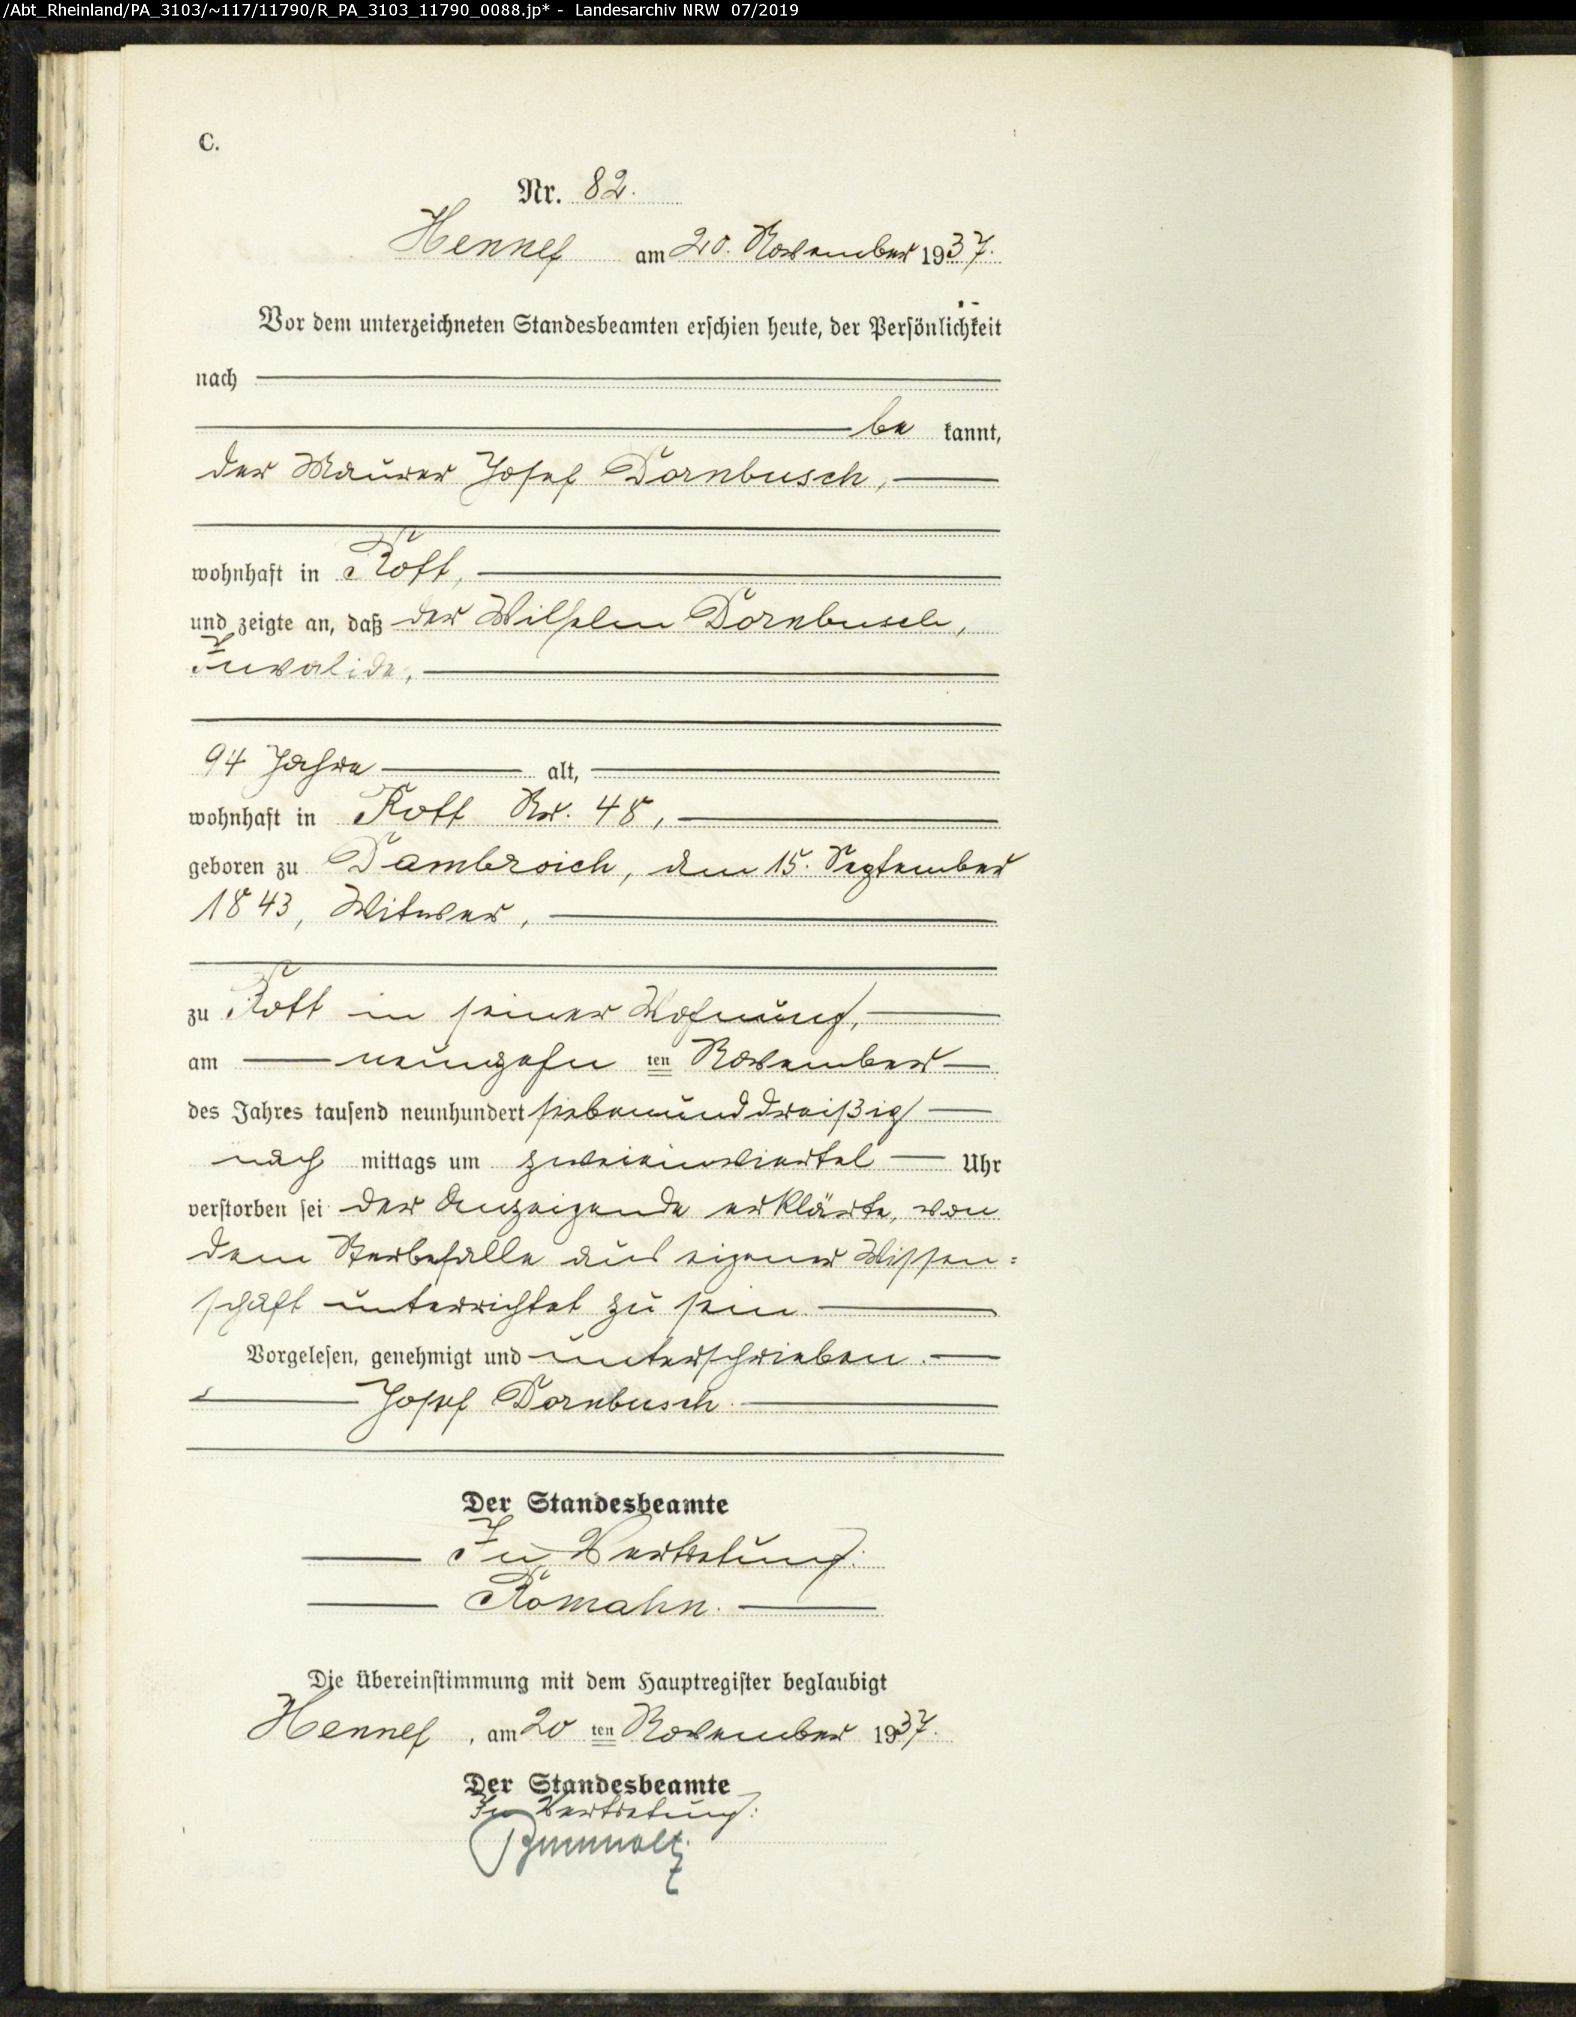 /Abt_Rheinland/PA_3103/~117/11790/R_PA_3103_11790_0088.jp* - Landesarchiv NRW 07/2019
C.
Nr. 82.
Hennef am 20. November 1937.
Vor dem unterzeichneten Standesbeamten erschien heute, der Persönlichkeit
nach
be kannt,
der Maurer Josef Dornbusch,
wohnhaft in Rott,
und zeigte an, daß der Wilhelm Dornbusch,
Invalide,
94 Jahre alt,
wohnhaft in Rott Nr. 48,
geboren zu Dambroich, den 15. September
1843, Witwer,
zu Rott in seiner Wohnung,
am neunzehn ten November
des Jahres tausend neunhundert siebenunddreißig
nach mittags um zweieinviertel Uhr
verstorben sei der Anzeigende erklärte, von
dem Sterbefalle aus eigener Wissen=
schaft unterrichtet zu sein.
Vorgelesen, genehmigt und unterschrieben.
Josef Dornbusch.
Der Standesbeamte
In Vertretung:
Romahn.
Die Übereinstimmung mit dem Hauptregister beglaubigt
Hennef, am 20 ten November 1937.
Der Standesbeamte
In Vertretung: